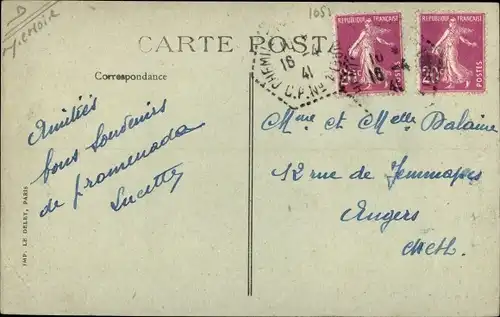 D
1051
CARTE POSTALE
Correspondance
REPUBLIQUE FRANÇAISE
POSTES
REPUBLIQUE FRANÇAISE
20c
POSTES
16
41
Amitiés
bons souvenirs
de promenade
Lucette
Mme et Melle Dalaine
12 rue de Jemmapes
Angers
M et L.
IMP. LE DELEY, PARIS